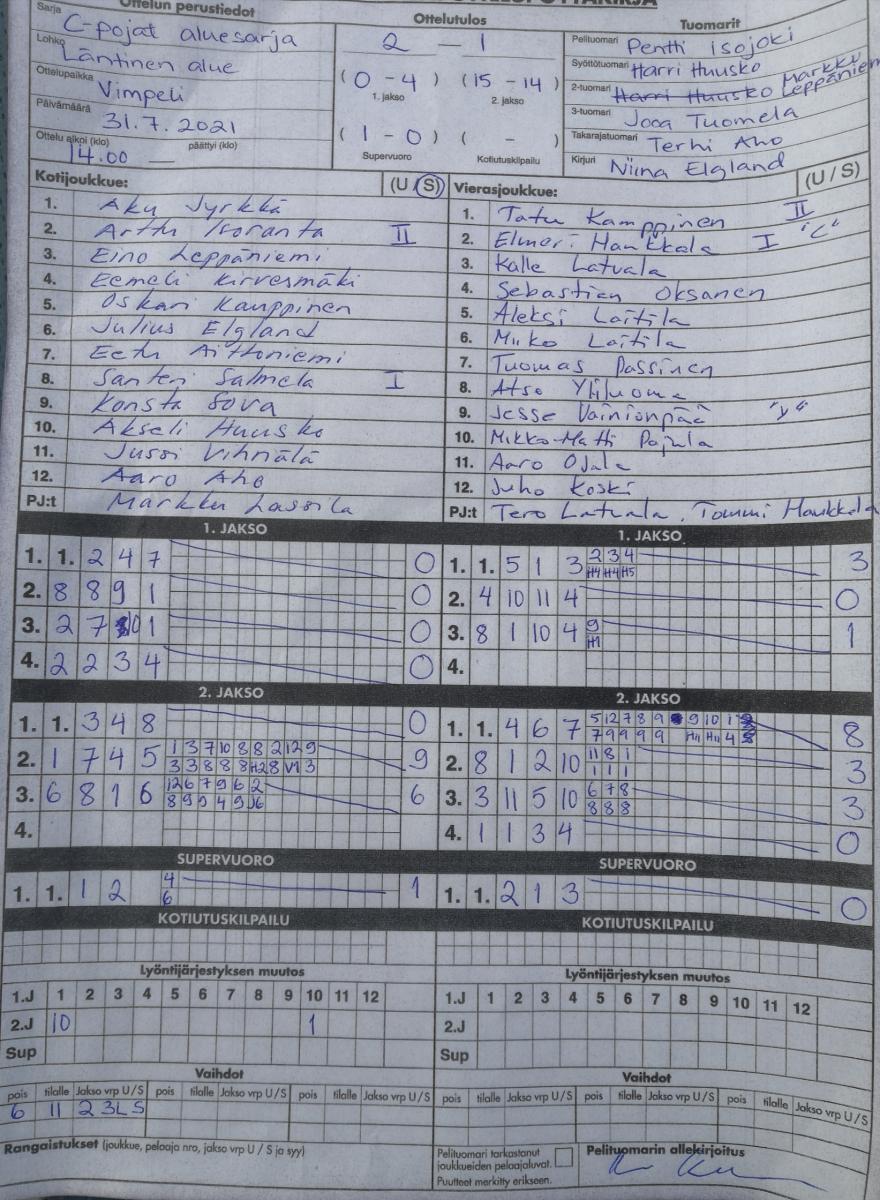 Ottelun perustiedot
Sarja C-pojat aluesarja
Lohko Läntinen alue
Ottelupaikka Vimpeli
Päivämäärä 31.7.2021
Ottelu alkoi (klo) päättyi (klo)
14.00 —
Ottelutulos
2 — 1
(0 - 4) (15 - 14)
1. jakso 2. jakso
(1 - 0) ( - )
Supervuoro Kotiutuskilpailu
Tuomarit
Pelituomari Pentti Isojoki
Syöttötuomari Harri Huusko
2-tuomari Harri Huusko Markku Leppäniemi
3-tuomari Jooa Tuomela
Takarajatuomari Terhi Aho
Kirjuri Niina Elgland
Kotijoukkue: (U / S)
1. Aku Jyrkkä
2. Arttu Isoranta II
3. Eino Leppäniemi
4. Eemeli Kirvesmäki
5. Oskari Kauppinen
6. Julius Elgland
7. Eetu Aittoniemi
8. Santeri Salmela I
9. Konsta Sova
10. Akseli Huusko
11. Jussi Vihnälä
12. Aaro Aho
PJ:t Markku Lassila
Vierasjoukkue: (U / S)
1. Tatu Kamppinen II
2. Elmeri Haukkala I "C"
3. Kalle Latvala
4. Sebastien Oksanen
5. Aleksi Laitila
6. Miiko Laitila
7. Tuomas Passinen
8. Atso Yliluoma
9. Jesse Vainionpää "V"
10. Mikko-Matti Pajula
11. Aaro Ojala
12. Juho Koski
PJ:t Tero Latvala, Tommi Haukkala
1. JAKSO
1. 1. 2 4 7 0
2. 8 8 9 1 0
3. 2 7 10 1 0
4. 2 2 3 4 0
1. JAKSO
1. 1. 5 1 3 2 3 4 3
H4 H4 H5
2. 4 10 11 4 0
3. 8 1 10 4 9 1
H1
4.
2. JAKSO
1. 1. 3 4 8 0
2. 1 7 4 5 1 3 7 10 8 8 2 12 9 9
3 3 8 8 8 H2 8 V1 3
3. 6 8 1 6 12 6 7 9 6 2 6
8 9 9 4 9 J6
4.
2. JAKSO
1. 1. 4 6 7 5 12 7 8 9 9 10 1 8
7 9 9 9 9 H11 H11 4
2. 8 1 2 10 11 8 1 3
1 1 1
3. 3 11 5 10 6 7 8 3
8 8 8
4. 1 1 3 4 0
SUPERVUORO
1. 1. 1 2 4 1
6
SUPERVUORO
1. 1. 2 1 3 0
KOTIUTUSKILPAILU
KOTIUTUSKILPAILU
Lyöntijärjestyksen muutos
1.J 1 2 3 4 5 6 7 8 9 10 11 12
2.J 10 1
Sup
Lyöntijärjestyksen muutos
1.J 1 2 3 4 5 6 7 8 9 10 11 12
2.J
Sup
Vaihdot
pois tilalle Jakso vrp U / S pois tilalle Jakso vrp U / S pois tilalle Jakso vrp U / S
6 11 2 3L S
Vaihdot
pois tilalle Jakso vrp U / S pois tilalle Jakso vrp U / S pois tilalle Jakso vrp U / S
Rangaistukset (joukkue, pelaaja nro, jakso vrp U / S ja syy)
Pelituomari tarkastanut
joukkueiden pelaajaluvat.
Puutteet merkitty erikseen.
Pelituomarin allekirjoitus